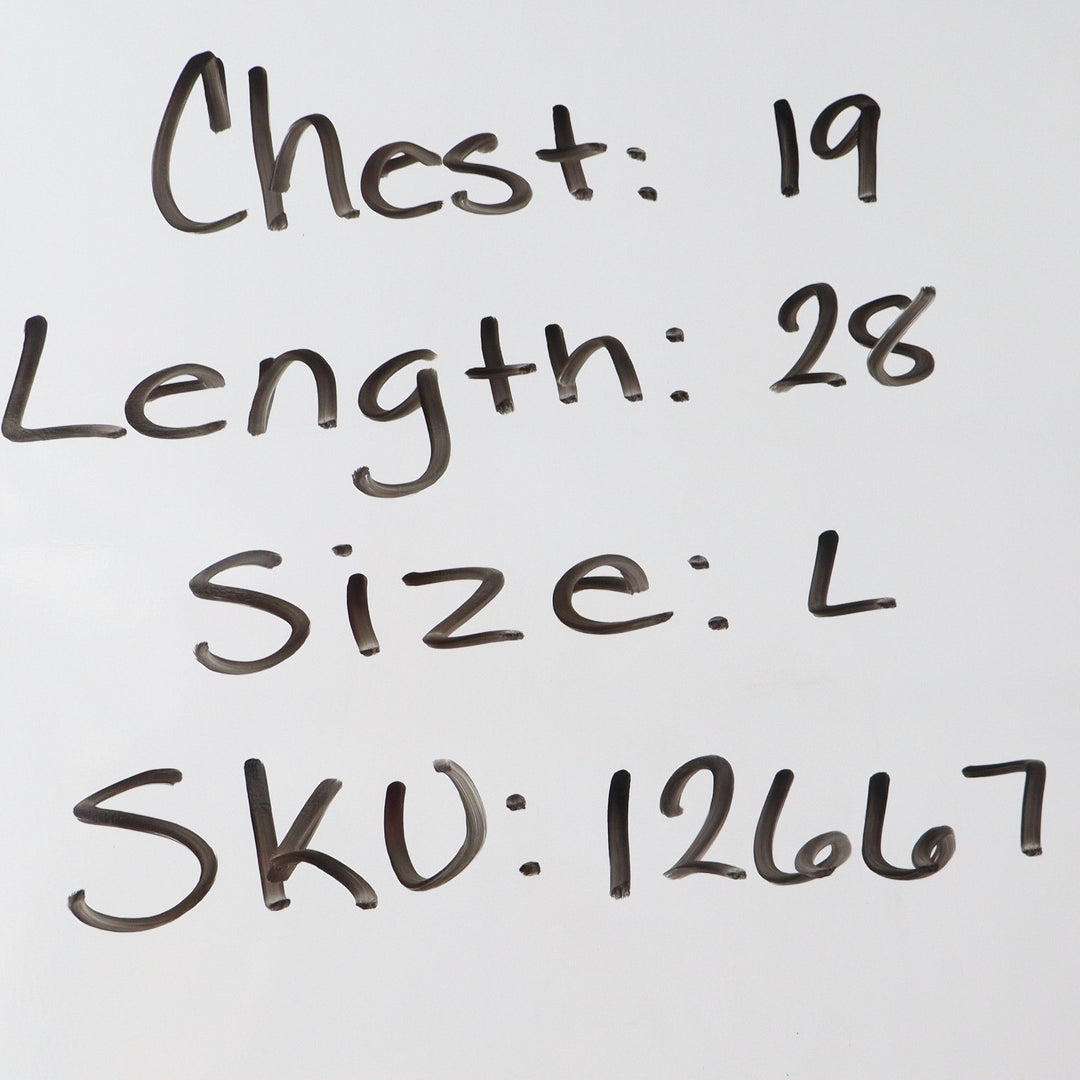 Chest: 19
Length: 28
Size: L
SKU: 12667